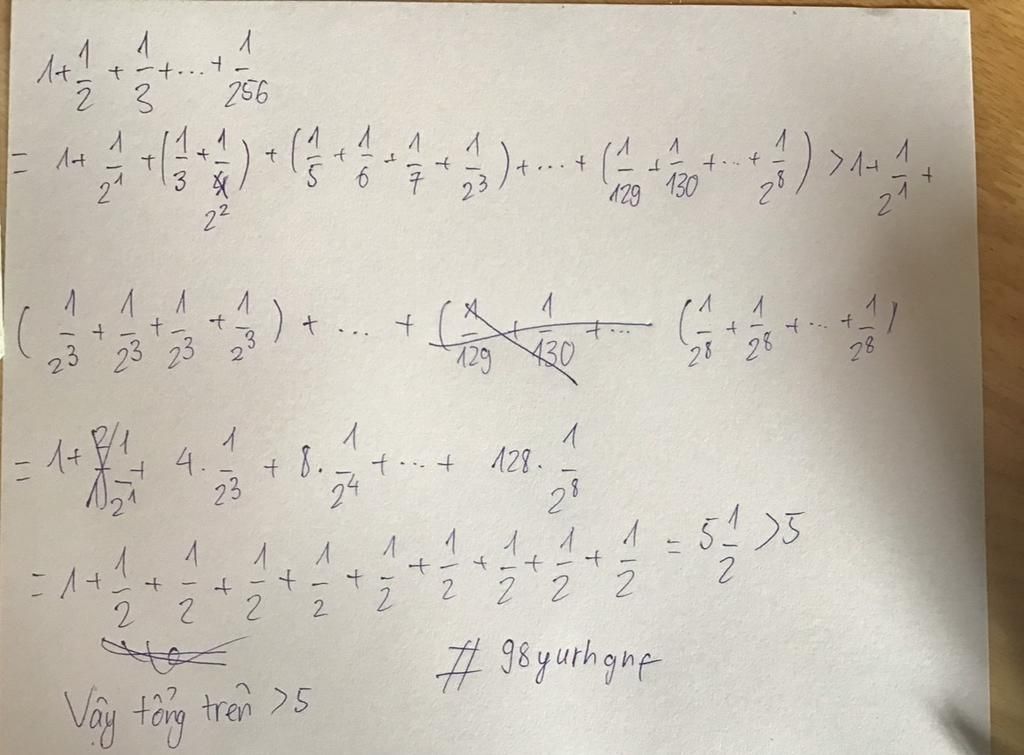 1 + 1/2 + 1/3 + ... + 1/256
= 1 + 1/2^1 + (1/3 + 1/2^2) + (1/5 + 1/6 + 1/7 + 1/2^3) + ... + (1/129 + 1/130 + ... + 1/2^8) > 1 + 1/2^1 +
(1/2^3 + 1/2^3 + 1/2^3 + 1/2^3) + ... + (1/2^8 + 1/2^8 + ... + 1/2^8)
= 1 + 1/2^1 + 4 . 1/2^3 + 8 . 1/2^4 + ... + 128 . 1/2^8
= 1 + 1/2 + 1/2 + 1/2 + 1/2 + 1/2 + 1/2 + 1/2 + 1/2 + 1/2 = 5 1/2 > 5
# 98yurhgnf
Vậy tổng trên > 5